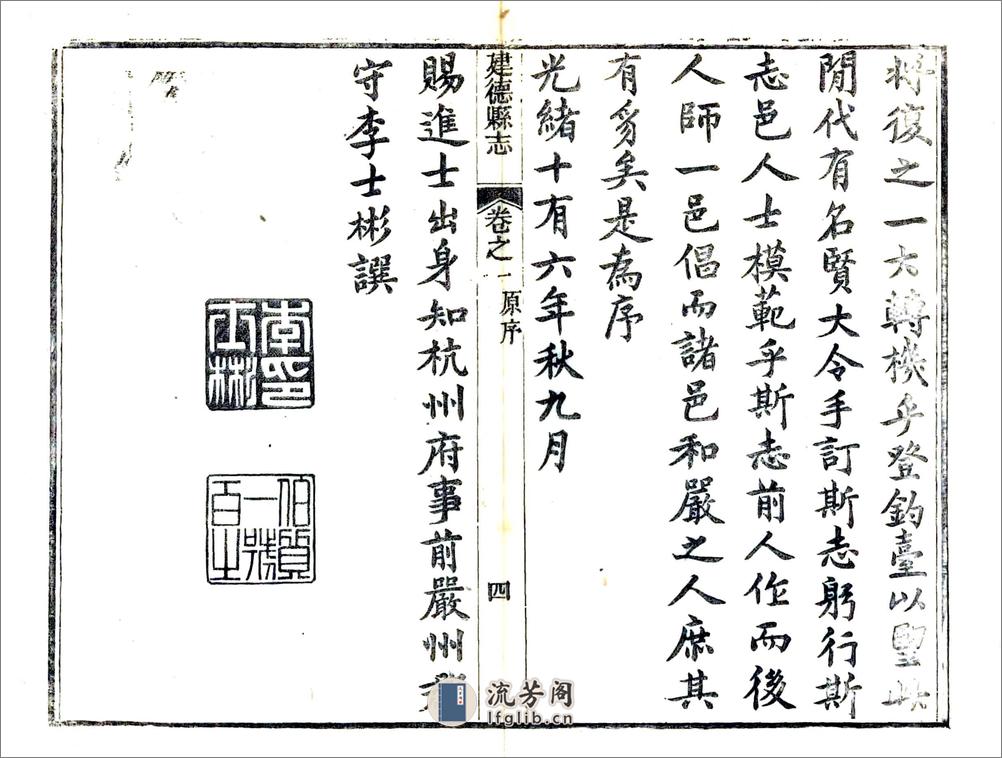 將復之一大轉機乎登釣臺以望此
間代有名賢大令手訂斯志躬行斯
志邑人士模範乎斯志前人作而後
人師一邑倡而諸邑和嚴之人庶其
有豸矣是為序
光緒十有六年秋九月
建德縣志
卷之一
原序
四
賜進士出身知杭州府事前嚴州
守李士彬譔
李士彬印
伯質一號百之
流芳阁
lfglib.cn